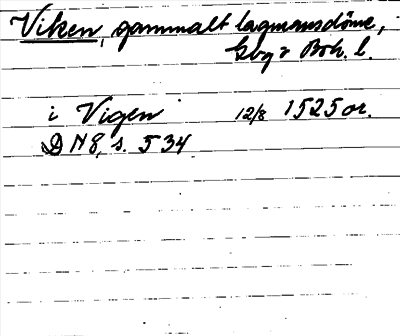 Viken, gammalt lagmansdöme,
Gbg o Boh. l.
i Vigen 12/8 1525 or.
DN 8, s. 534